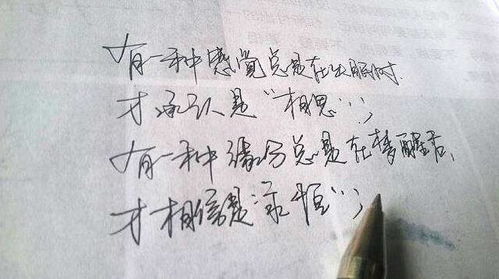 有一种感觉总是在失眠时,
才承认是“相思”;
有一种缘分总是在梦醒后,
才相信是“永恒”;